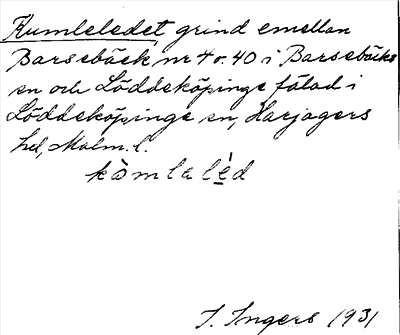 Kumleledet, grind emellan
Barsebäck nr 4 o. 40 i Barsebäcks
sn och Löddeköpinge fälad i
Löddeköpinge sn, Harjagers
hd, Malm. l.
kòmlalèd
I. Ingers 1931